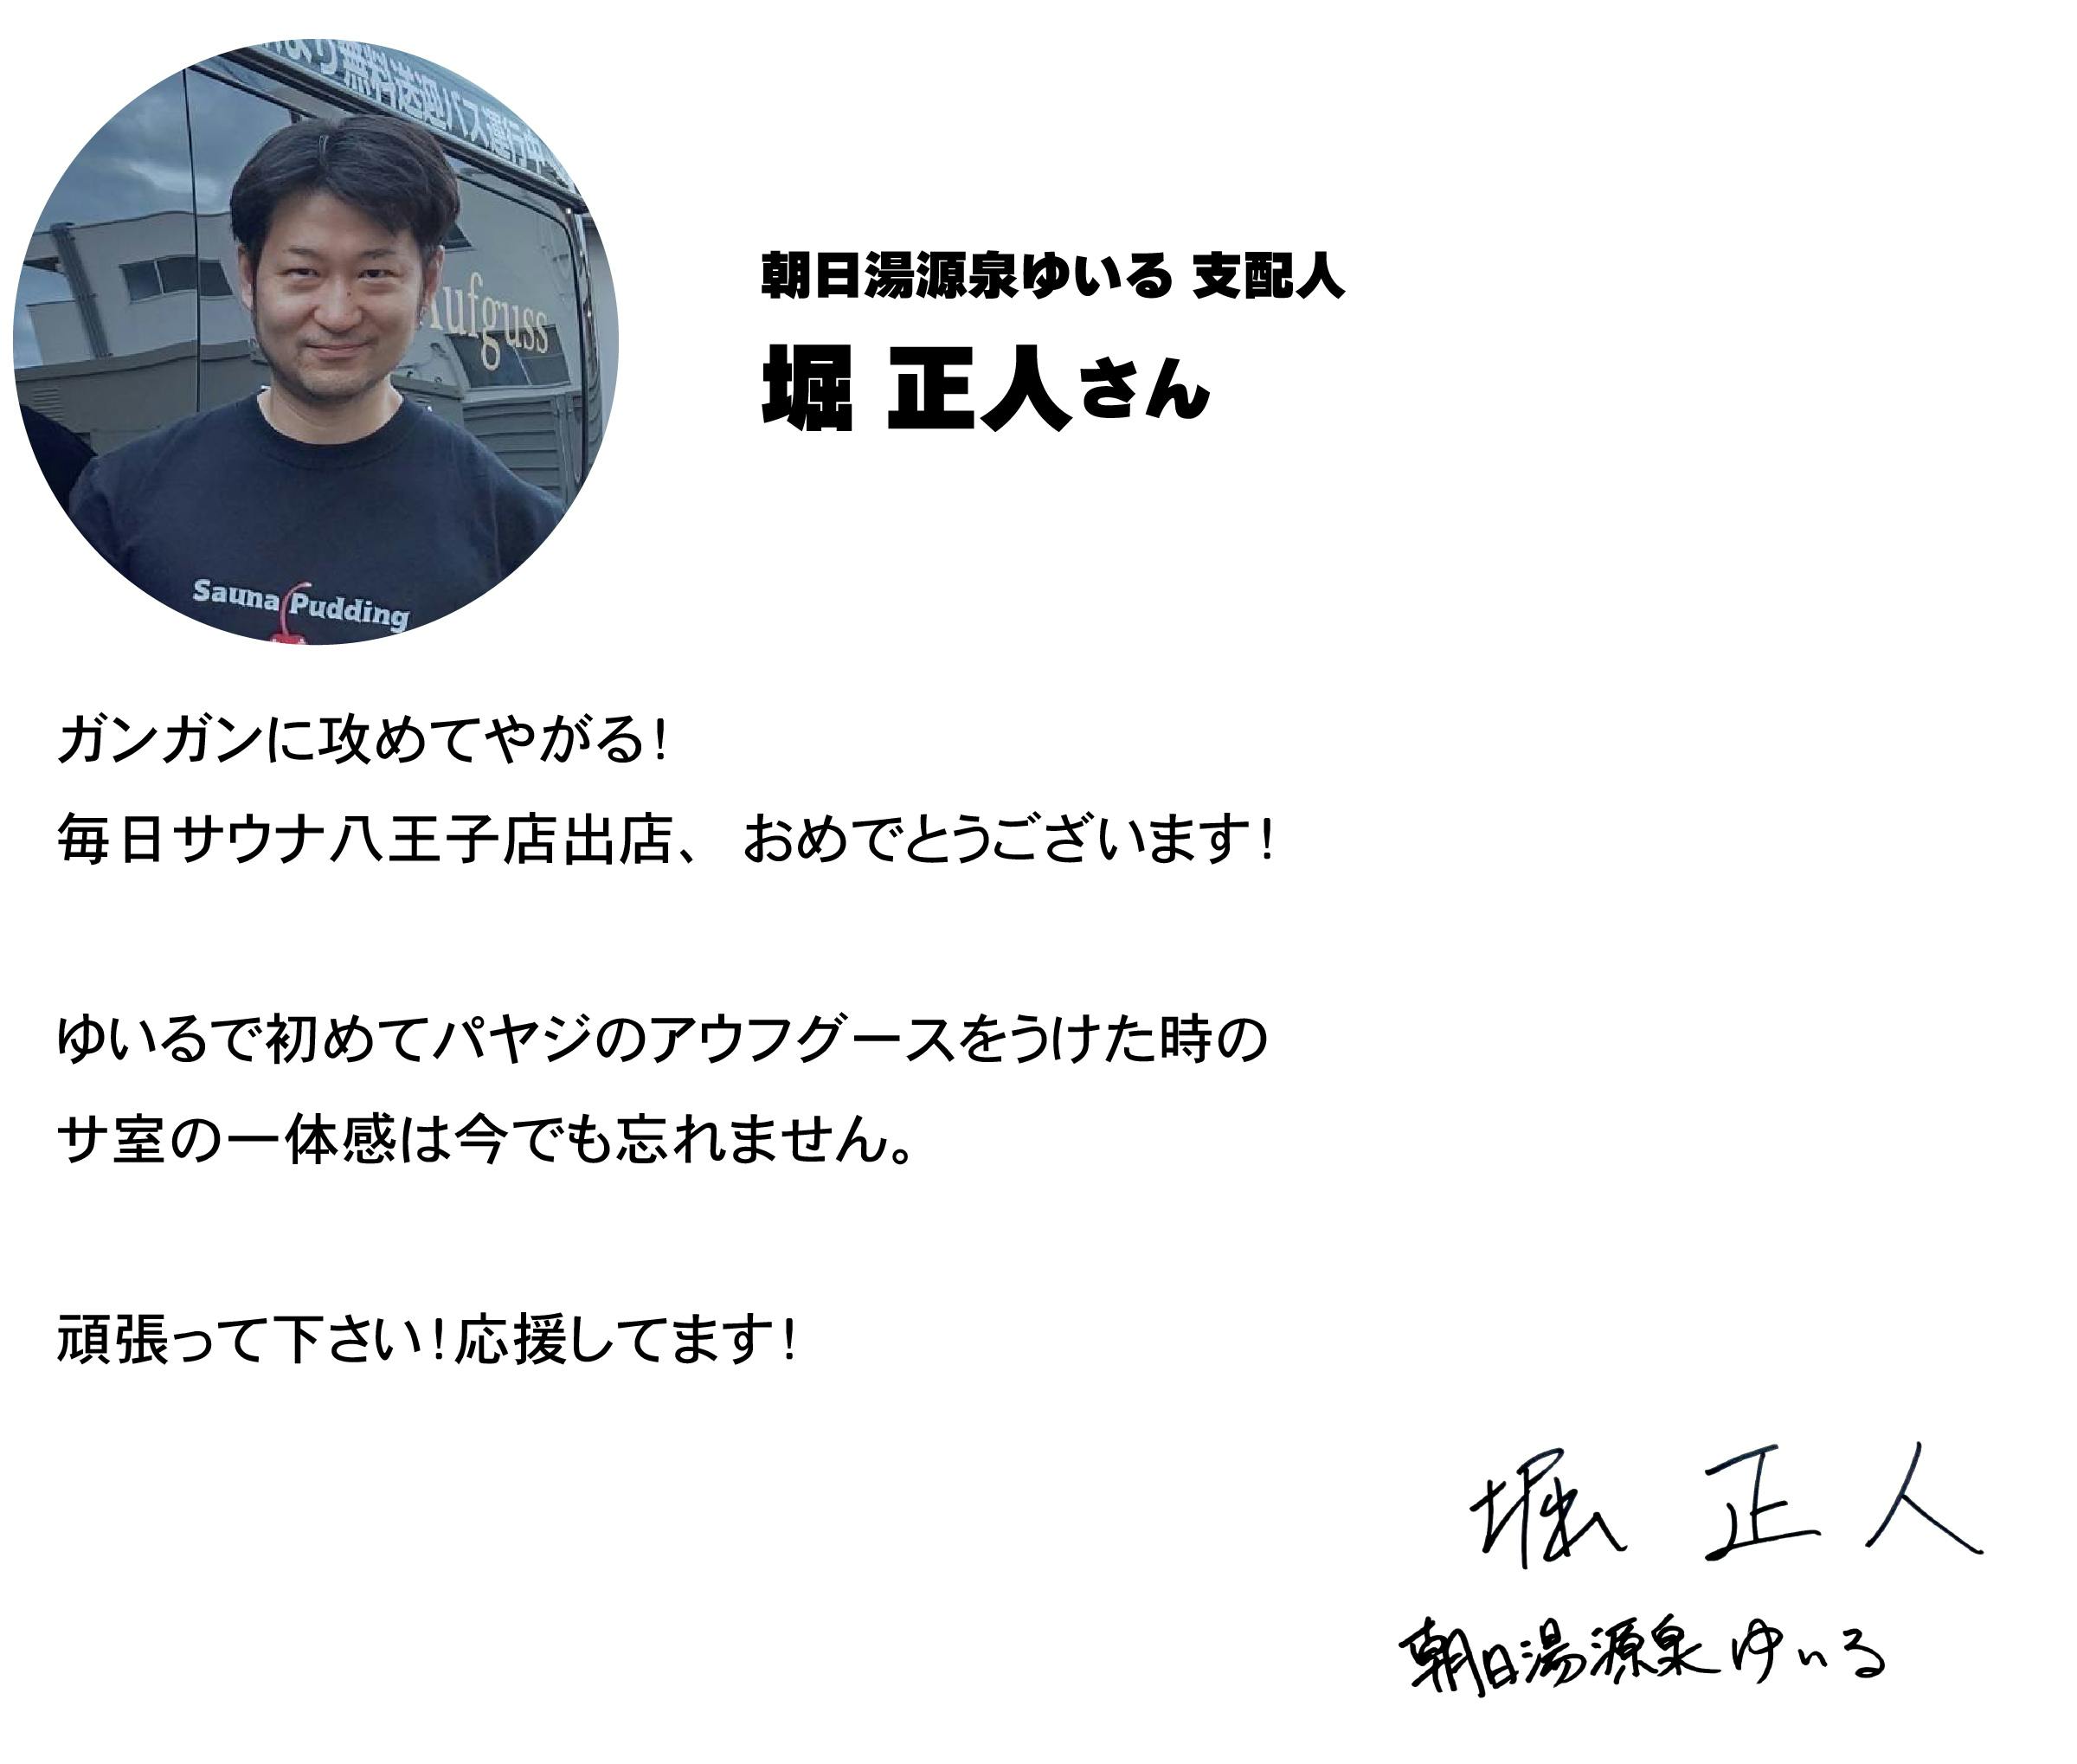 り無料送迎バス運行中
Aufguss
Sauna Pudding
朝日湯源泉ゆいる 支配人
堀 正人さん
ガンガンに攻めてやがる!
毎日サウナ八王子店出店、 おめでとうございます!
ゆいるで初めてパヤジのアウフグースをうけた時の
サ室の一体感は今でも忘れません。
頑張って下さい!応援してます!
堀 正人
朝日湯源泉ゆいる